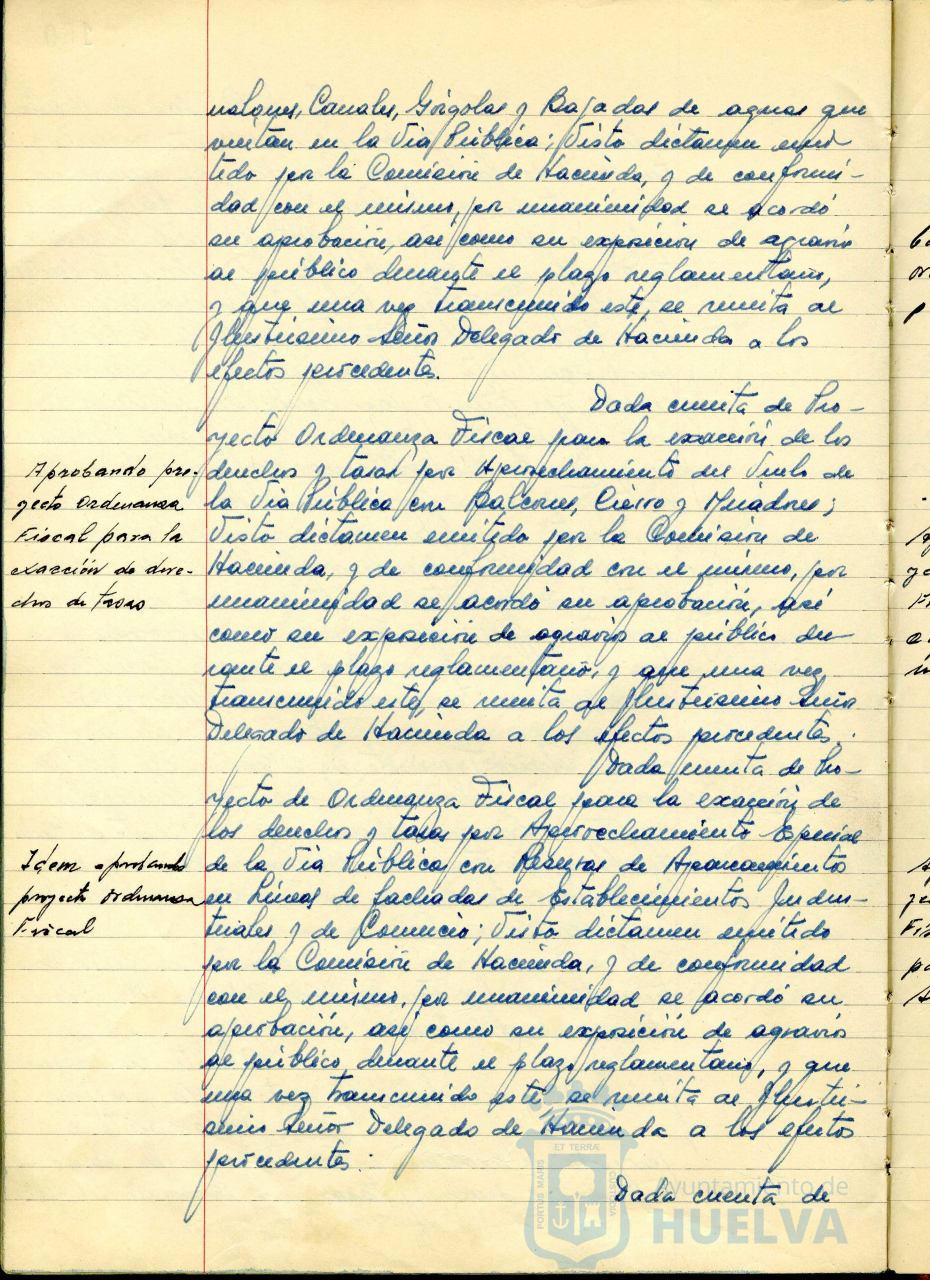 nalones, Canales, Gárgolas y Bajadas de aguas que
viertan en la Vía Pública; Visto dictamen emi-
tido por la Comisión de Hacienda, y de conformi-
dad con el mismo, por unanimidad se acordó
su aprobación, así como su exposición de agravios
al público durante el plazo reglamentario,
y que una vez transcurrido este, se remita al
Ilustrísimo Señor Delegado de Hacienda a los
efectos procedentes.
Dada cuenta de Pro-
yecto Ordenanza Fiscal para la exacción de los
derechos y tasas por Aprovechamiento del Vuelo de
la Vía Pública con Balcones, Cierro y Miradores;
Visto dictamen emitido por la Comisión de
Hacienda, y de conformidad con el mismo, por
unanimidad se acordó su aprobación, así
como su exposición de agravios al público du-
rante el plazo reglamentario, y que una vez
transcurrido este, se remita al Ilustrísimo Señor
Delegado de Hacienda a los efectos procedentes.
Dada cuenta de Pro-
yecto de Ordenanza Fiscal para la exacción de
los derechos y tasas por Aprovechamiento Especial
de la Vía Pública con Reservas de Aparcamientos
en Líneas de fachadas de Establecimientos Indus-
triales y de Comercio; Visto dictamen emitido
por la Comisión de Hacienda, y de conformidad
con el mismo, por unanimidad se acordó su
aprobación, así como su exposición de agravios
al público durante el plazo reglamentario, y que
una vez transcurrido este se remita al Ilustrí-
simo Señor Delegado de Hacienda a los efectos
procedentes.
Dada cuenta de
Aprobando pro-
yecto Ordenanza
Fiscal para la
exacción de dere-
chos de tasas
Idem aprobando
proyecto Ordenanza
Fiscal
ET TERRÆ
PORTUS MARIS
CUSTODIA
Ayuntamiento de
HUELVA